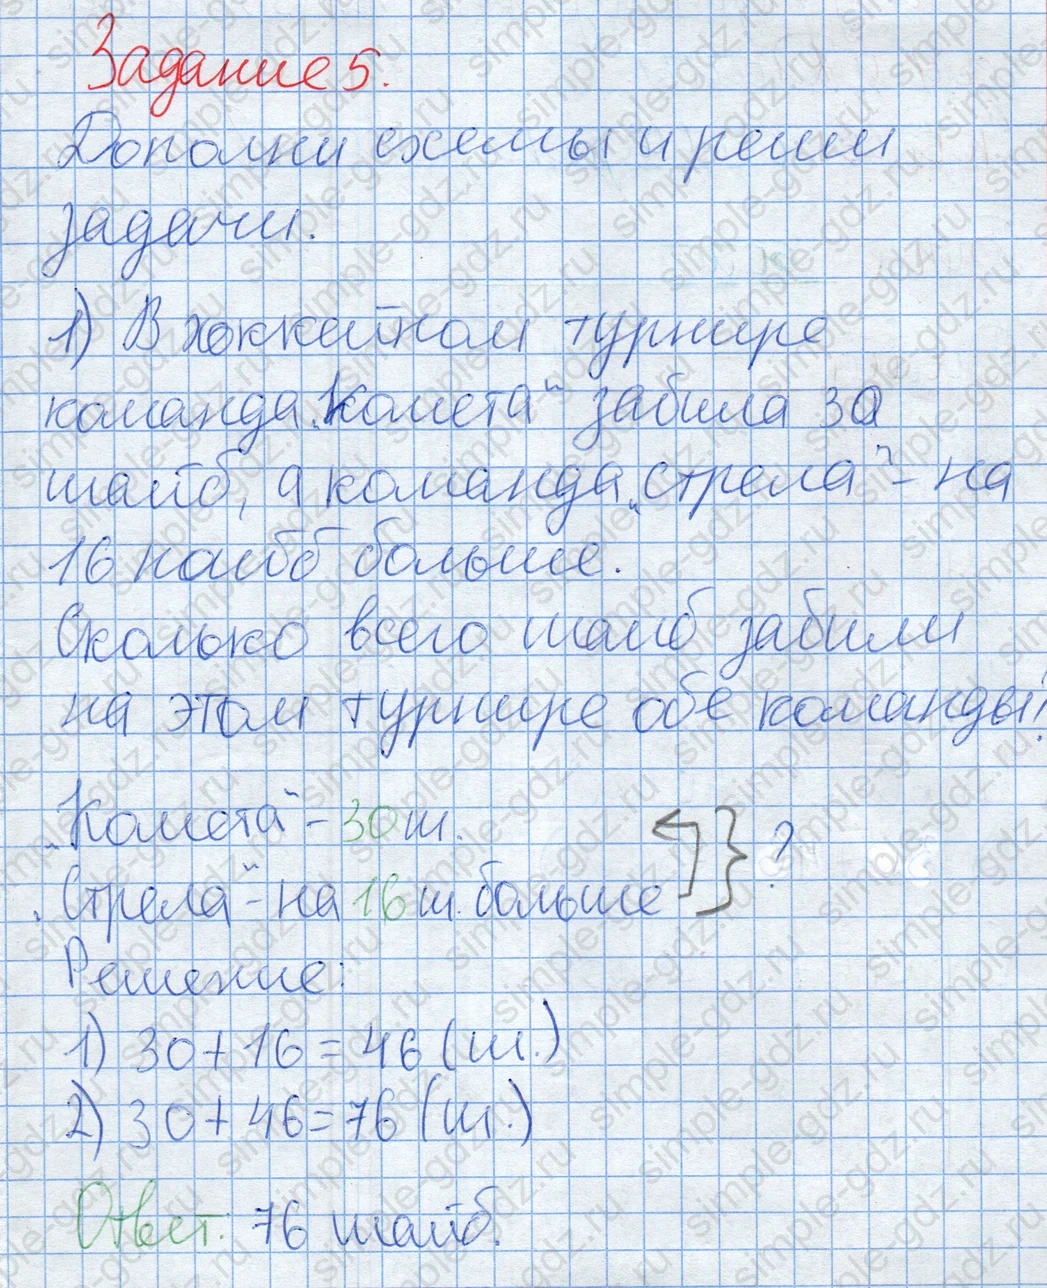 Задание 5.
Дополни схемы и реши
задачи.
1) В хоккейном турнире
команда „Комета“ забила 30
шайб, а команда „Стрела“ – на
16 шайб больше.
Сколько всего шайб забили
на этом турнире обе команды?
„Комета“ – 30 ш.
„Стрела“ – на 16 ш. больше } ?
Решение:
1) 30 + 16 = 46 (ш.)
2) 30 + 46 = 76 (ш.)
Ответ: 76 шайб.
simple-gdz.ru